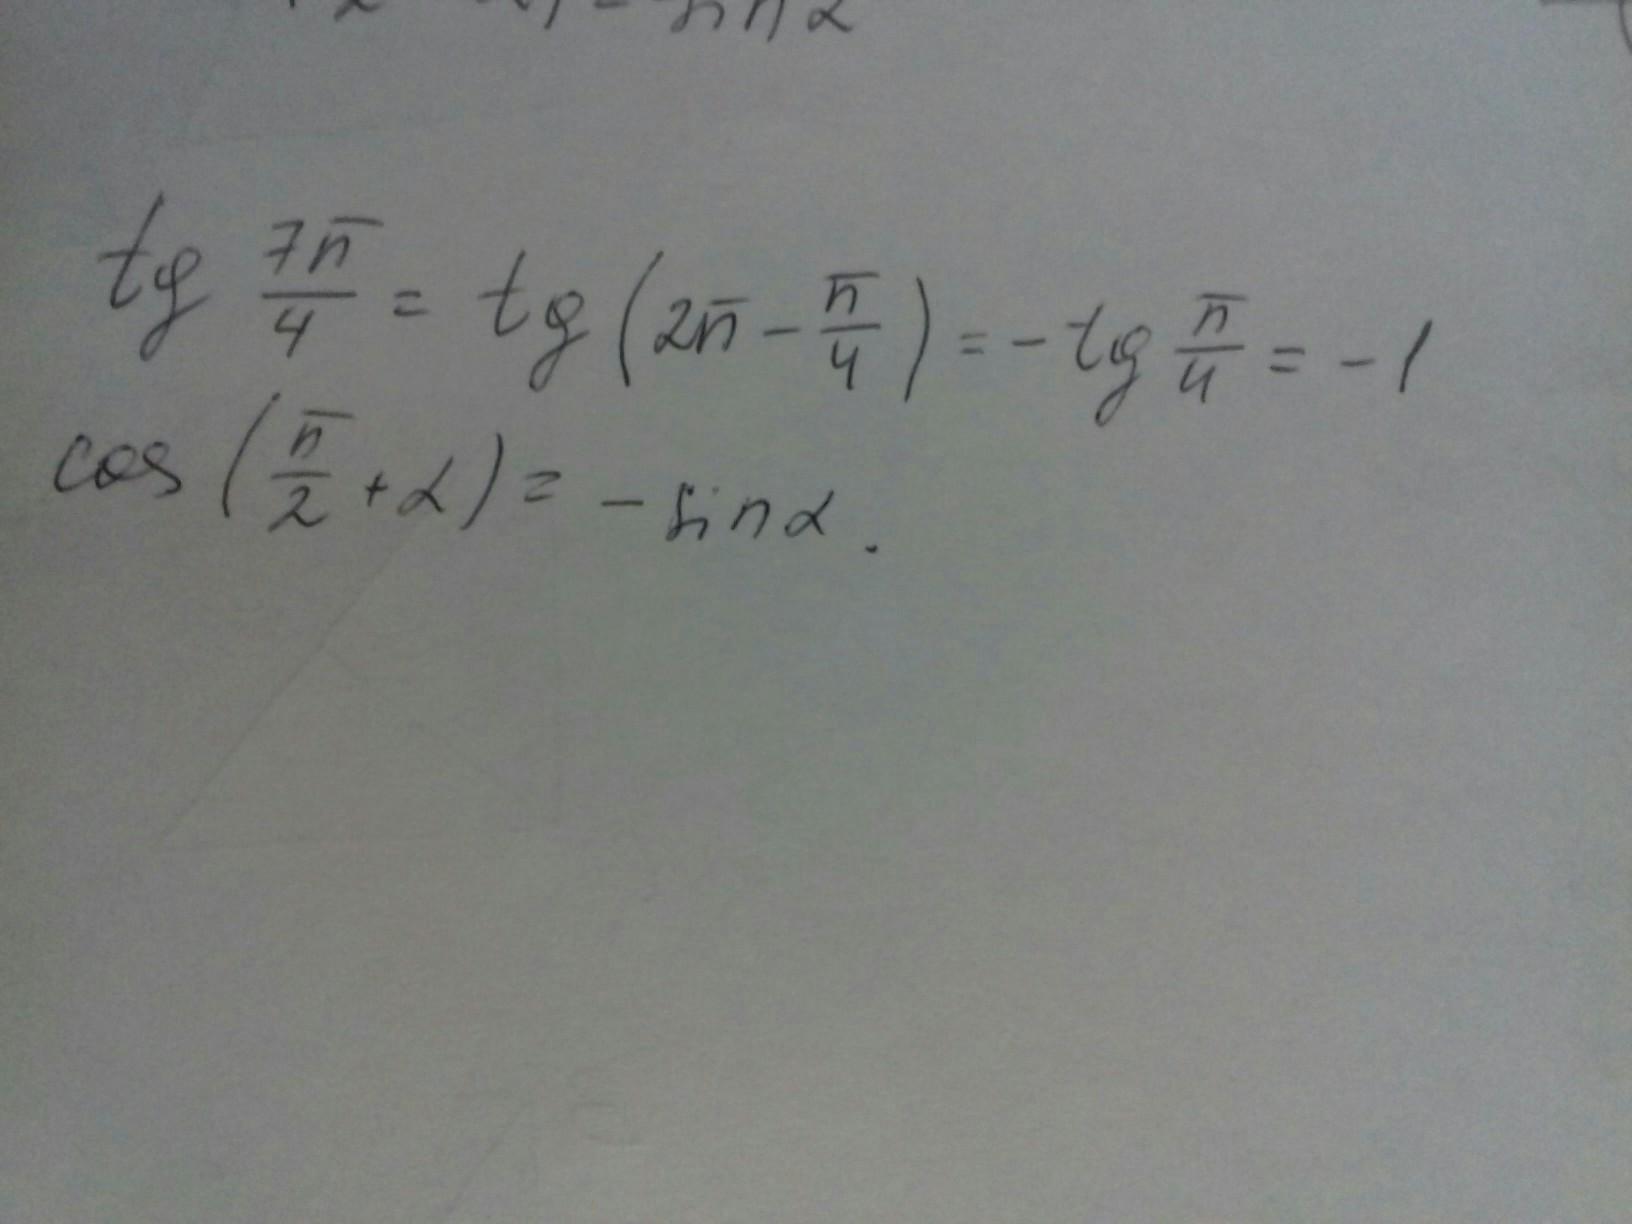 = sin α
tg 7π/4 = tg (2π - π/4) = - tg π/4 = - 1
cos (π/2 + α) = - sin α.